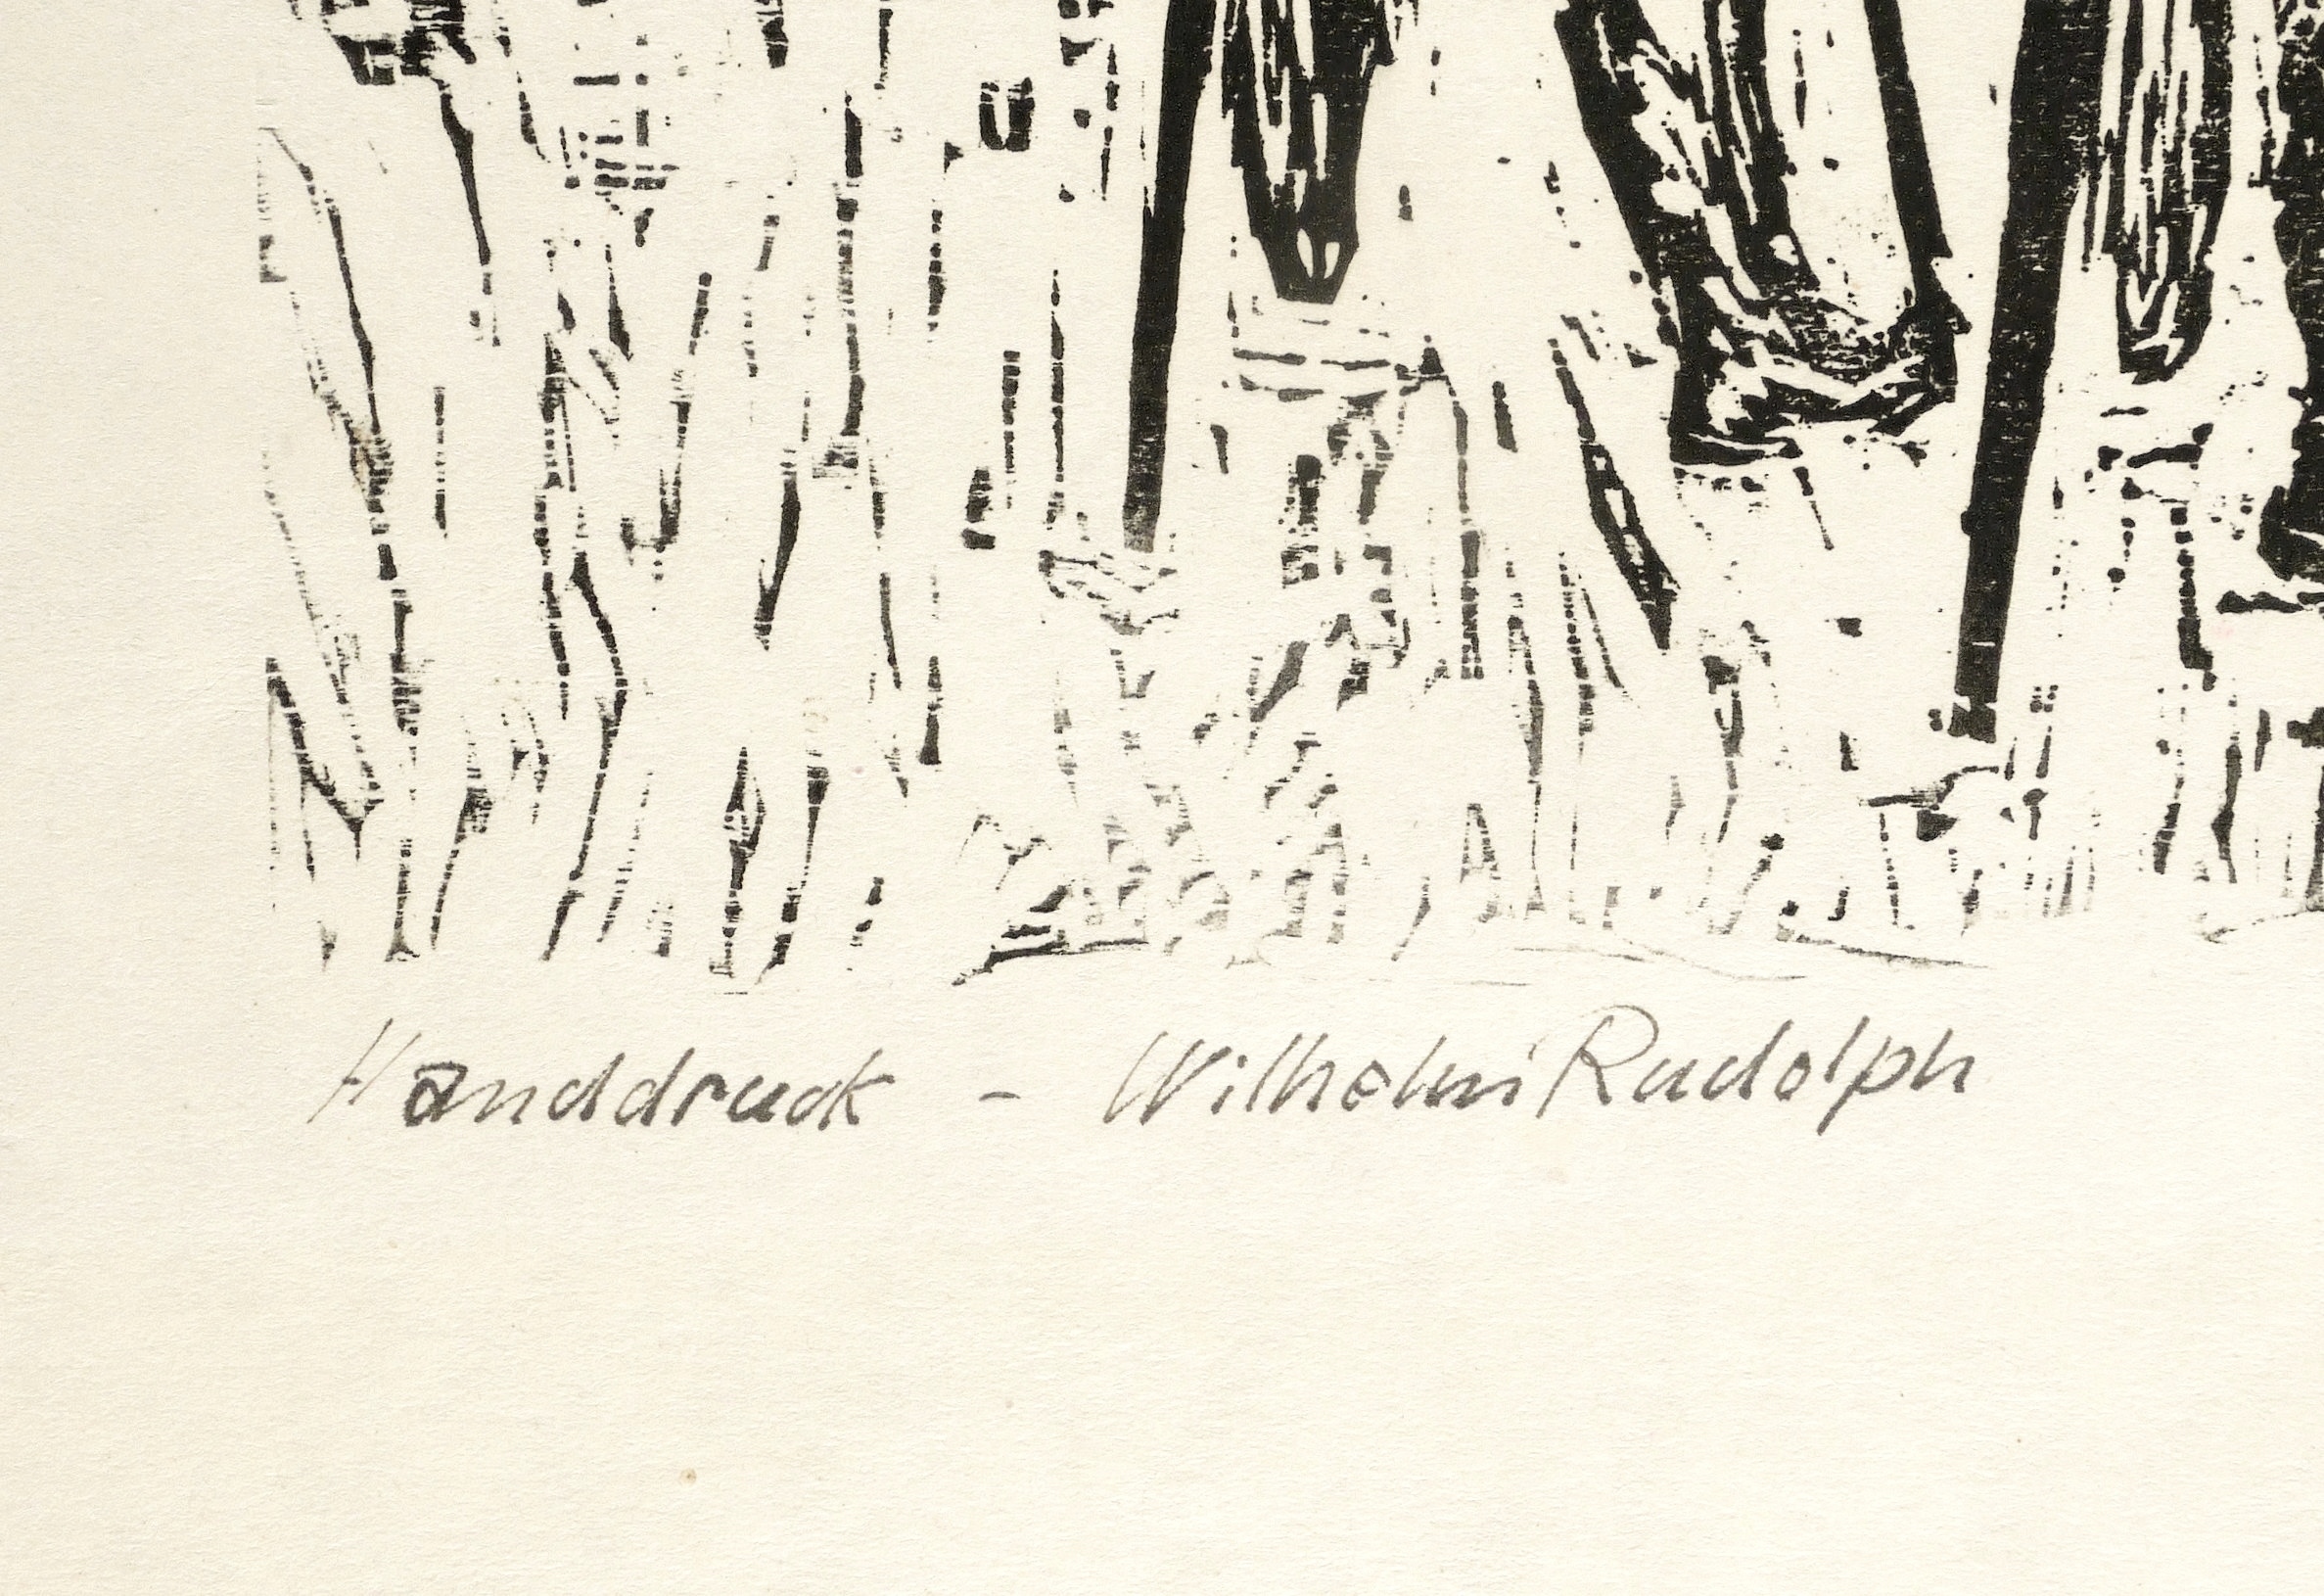 Handdruck - Wilhelm Rudolph